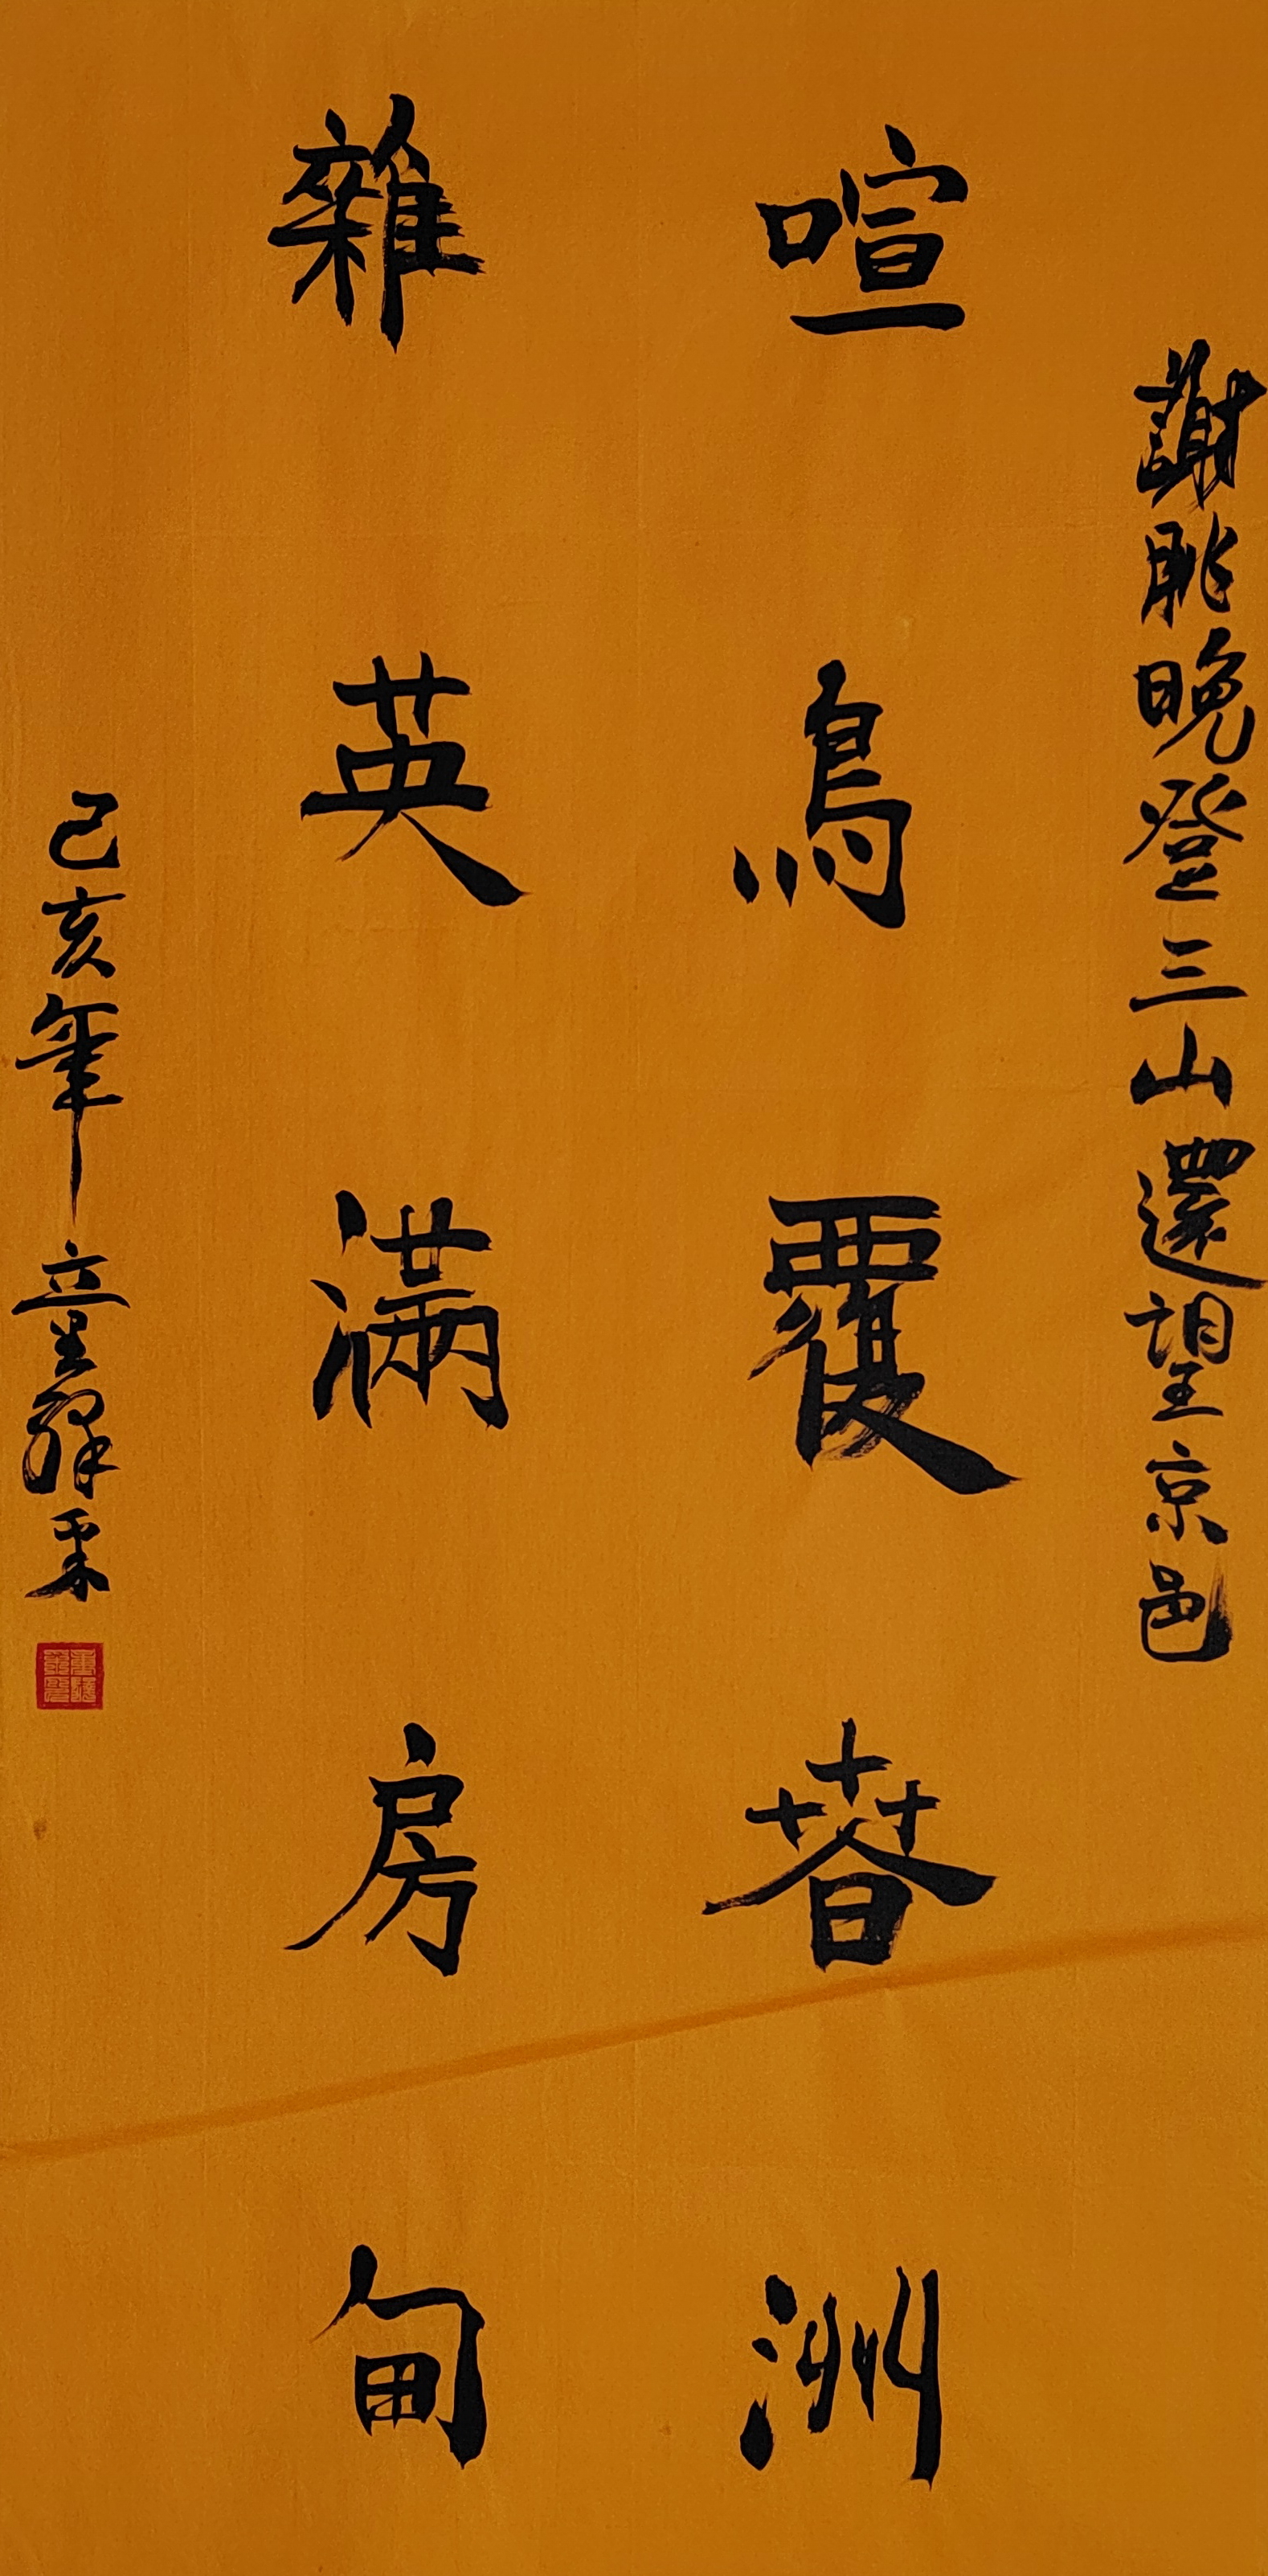 謝朓晚登三山還望京邑
喧鳥覆春洲
雜英滿房甸
己亥年立